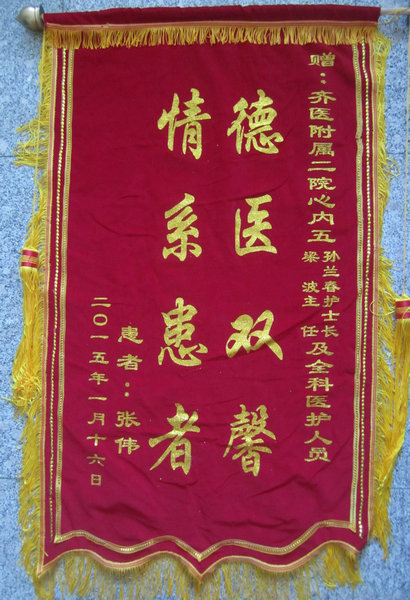 赠：齐医附属二院心内五
孙兰春护士长
梁波主任
及全科医护人员
德医双馨
情系患者
患者：张伟
二〇一五年一月十六日